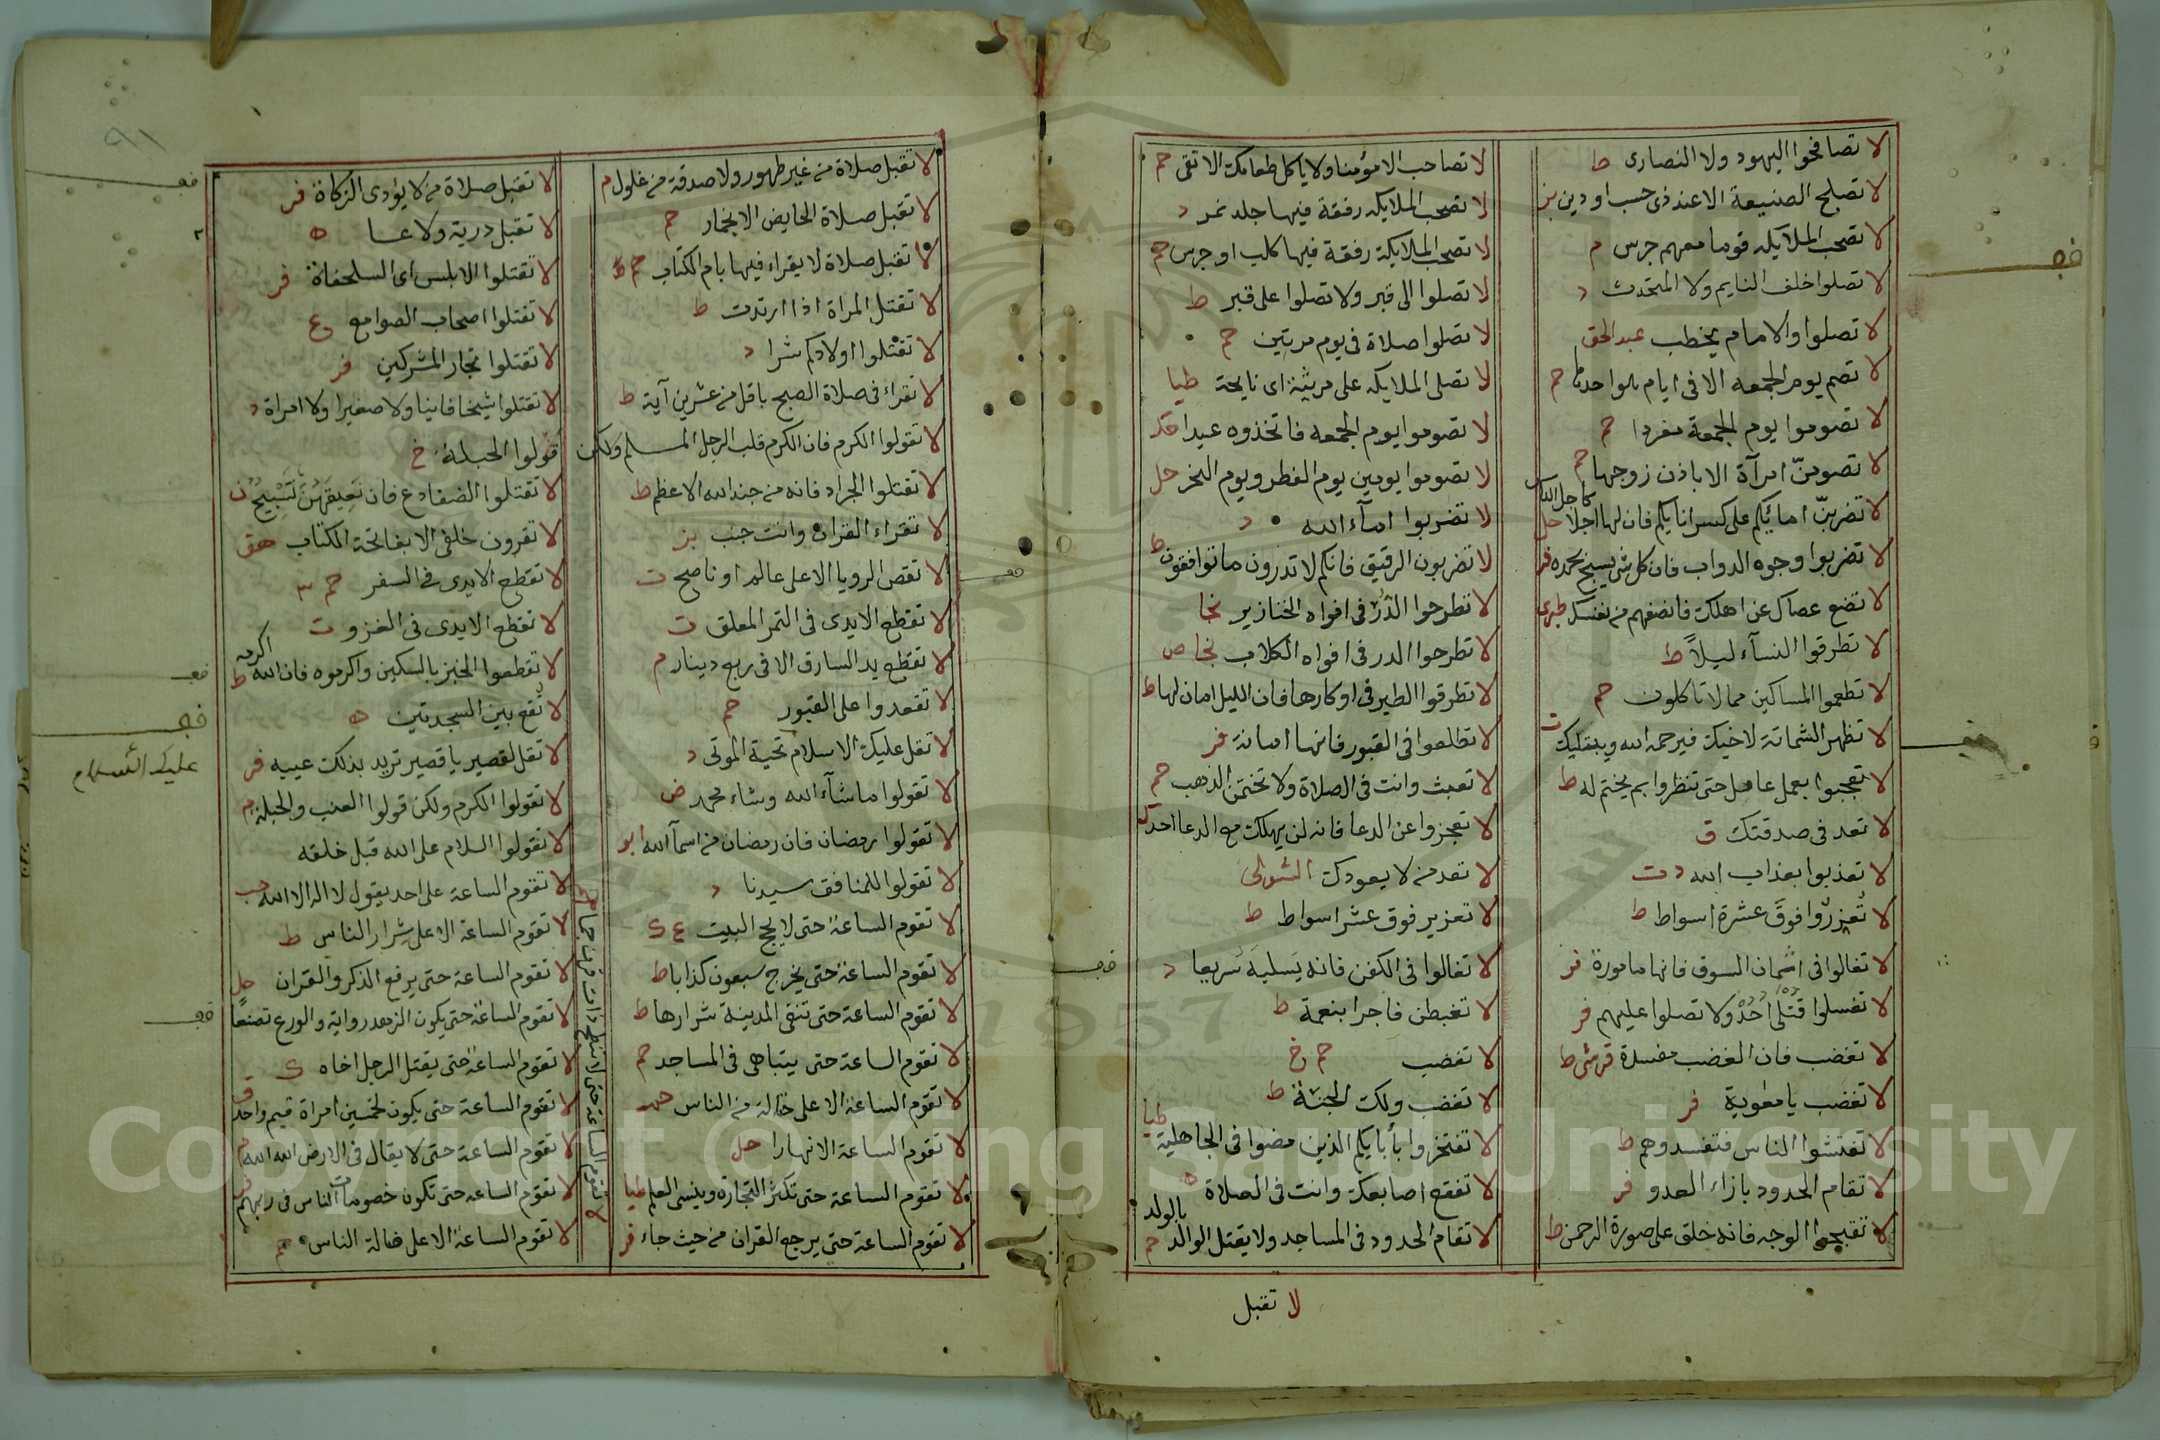 لا تصافحوا اليهود ولا النصارى ط
لا تصلح الصنيعة الا عند ذى حسب او دين بز
لا تصحب الملايكه قوما معهم جرس م
لا تصلوا خلف النايم ولا المتحدث د
لا تصلوا والامام يخطب عبد الحق
لا تصم يوم الجمعه الا فى ايام هو احدها حم
لا تصوموا يوم الجمعة مفردا حم
لا تصومنّ امرآة الا باذن زوجها حم
لا تضربنّ امائكم على كسر انايكم فان لها اجلا كاجل الناس حل
لا تضربوا وجوه الدواب فان كل شى يسبح بحمده فر
لا تضع عصاك عن اهلك فانصفهم من نفسك طبرى
لا تطرقوا النسآء ليلاً ط
لا تطعموا المساكين مما لا تاكلون حم
لا تظهر الشماتة لاخيك فيرحمه الله ويبتليك ت
لا تعجبوا بعمل عامل حتى تنظروا بم يختم له ط
لا تعد فى صدقتك ق
لا تعذبوا بعذاب الله د ت
لا تُعزرّوا فوقَ عشرة اسواط ط
لا تغالوا فى اثمان السوق فانها مامورة فر
لا تغسلوا قتْلى اُحُدْ ولا تصلوا عليهم فر
لا تغضب فان الغضب مفسدة ط
لا تغضب يا معٰوية فر
لا تفتشوا الناس فتفسدوهم ط
لا تقام الحدود بازاء العدو فر
لا تقبحوا الوجه فانه خلق على صورة الرحمن ط
لا تصاحب الا مؤمنا ولا ياكل طعامك الا تقى حم
لا تصحب الملايكه رفقة فيها جلد نمر د
لا تصحب الملايكة رفقة فيها كلب او جرس حم
لا تصلوا الى قبر ولا تصلوا على قبر ط
لا تصلوا صلاة فى يوم مرتين حم
لا تصلى الملايكه على مرثية اى نايحة طيا
لا تصوموا يوم الجمعه فاتخذوه عيدا
لا تصوموا يومين يوم الفطر ويوم النحر حل
لا تضربوا امآء الله د
لا تضربون الرقيق فانكم لا تدرون ما توافقون ط
لا تطرحوا الدّرّ فى افواه الخنازير نجا
لا تطرحوا الدر فى افواه الكلاب نجا ص
لا تطرقوا الطير فى اوكارها فان الليل امان لها ط
لا تطلعوا فى القبور فانها امانة فر
لا تعبث وانت فى الصلاة ولا تختمن الذهب حم
لا تعجزوا عن الدعا فانه لن يهلك مع الدعا احد ك
لا تعد من لا يعودك
لا تعزير فوق عشر اسواط ط
لا تغالوا فى الكفن فانه يسلبه سريعا د
لا تغبطن فاجرا بنعمة ط
لا تغضب حم خ
لا تغضب ولك الجنة ط
لا تفتخروا بأبايكم الذين مضوا فى الجاهلية طيا
لا تفقع اصابعك وانت فى الصلاة ه
لا تقام الحدود فى المساجد ولا يقتل الوالد بالولد حم
لا تقبل
٩١
لا تقبل صلاة من غير طهور ولا صدقة من غلول م
لا تقبل صلاة الحايض الا بخمار حم
لا تقبل صلاة لا يقراء فيها بام الكتاب حم ط
لا تقتل المراة اذا ارتدت ط
لا تقتلوا اولادكم شرا د
لا تقراء فى صلاة الصبح باقل من عشرين آية ط
لا تقولوا الكرم فان الكرم قلب الرجل المسلم ولكن
لا تقتلوا الجراد فانه من جند الله الاعظم ط
لا تقراء القران وانت جنب بز
لا تقص الرويا الا على عالم او ناصح ت
لا تقطع الايدى فى التمر المعلق ت
لا تقطع يد السارق الا فى ربع دينار م
لا تقعدوا على القبور حم
لا تقل عليك الاسلام تحية الموتى د
لا تقولوا ما شآء الله وشاء محمد ض
لا تقولوا رمضان فان رمضان من اسمآ الله ابو
لا تقولوا للمنافق سيدنا د
لا تقوم الساعة حتى لا يحج البيت ع ك
لا تقوم الساعة حتى يخرج سبعون كذابا ط
لا تقوم الساعة حتى تنفى المدينة شرارها ط
لا تقوم الساعة حتى يتباهى فى المساجد حم
لا تقوم الساعة الا على حثالة من الناس حم
لا تقوم الساعة الا نهارا حل
لا تقوم الساعة حتى تكثر التجارة وينسى العلم طيا
لا تقوم الساعة حتى يرجع القران من حيث جاء فر
لا تقوم الساعة حتى لا تنطح ذات قرن جما
لا تقبل صلاة من لا يؤدى الزكاة فر
لا تقبل درية ولا عسا ه
لا تقتلوا الابلس اى السلحفاة فر
لا تقتلوا اصحاب الصوامع ع
لا تقتلوا تجار المشركين فر
لا تقتلوا شيخا فانيا ولا صغيرا ولا امراة د
قولوا الحبلة خ
لا تقتلوا الضفادع فان نَعِيقَهُنَّ تَسْبِيحٌ ن
لا تقرون خلفى الا بفاتحة الكتاب هق
لا تقطع الايدى فى السفر حم ٣
لا تقطع الايدى فى الغزو ت
لا تقطعوا الخبز بالسكين واكرموه فان الله اكرمه ط
لا تُقع بين السجدتين ه
لا تقل لقصير يا قصير تريد بذلك عيبه فر
لا تقولوا الكرم ولكن قولوا العنب والحبلة م
لا تقولوا السلام على الله قبل خلقه
لا تقوم الساعة على احد يقول لا اله الا الله حب
لا تقوم الساعة الا على شرار الناس ط
لا تقوم الساعة حتى يرفع الذكر والقران حل
لا تقوم الساعة حتى يكون الزهد رواية والورع تصنعاً
لا تقوم الساعة حتى يقتل الرجل اخاه ك
لا تقوم الساعة حتى يكون لخمسين امراة قيم واحد ق
لا تقوم الساعة حتى لا يقال فى الارض الله الله م
لا تقوم الساعه حتى تكون خصومات الناس فى ربهم فر
لا تقوم الساعة الا على ضالة الناس حم
عليك السلام
1957
Copyright © King Saud University